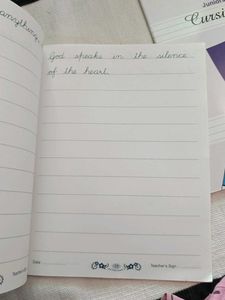 anything.
God speaks in the silence
of the heart.
Date
Teacher's Sign
Junior
Cursi